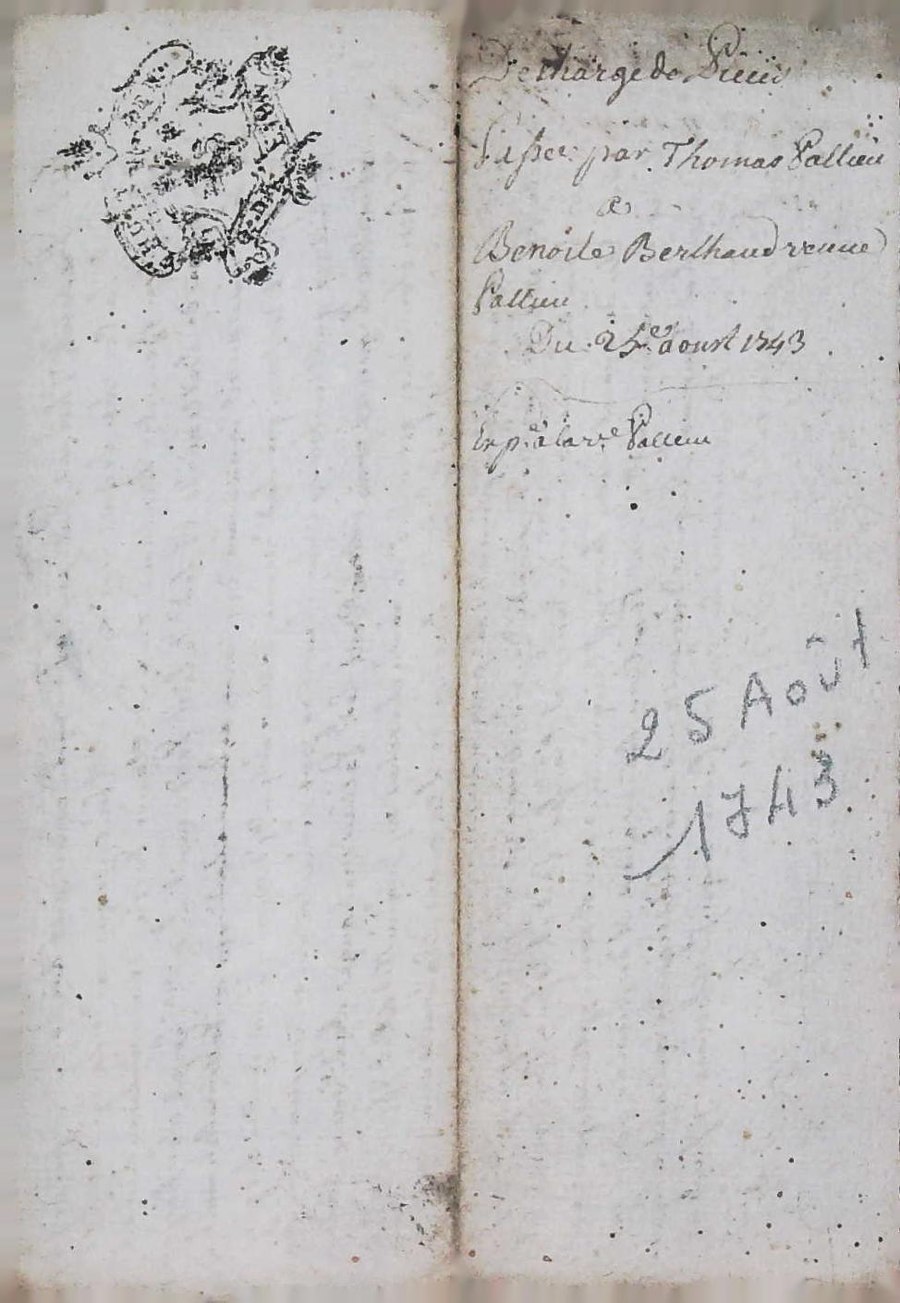 Decharge de Pieces
Passée par Thomas Pallieu
a
Benoite Berthaud veuve
Pallieu
Du 25e aoust 1743
Exp. a la ve Pallieu
25 Août
1743